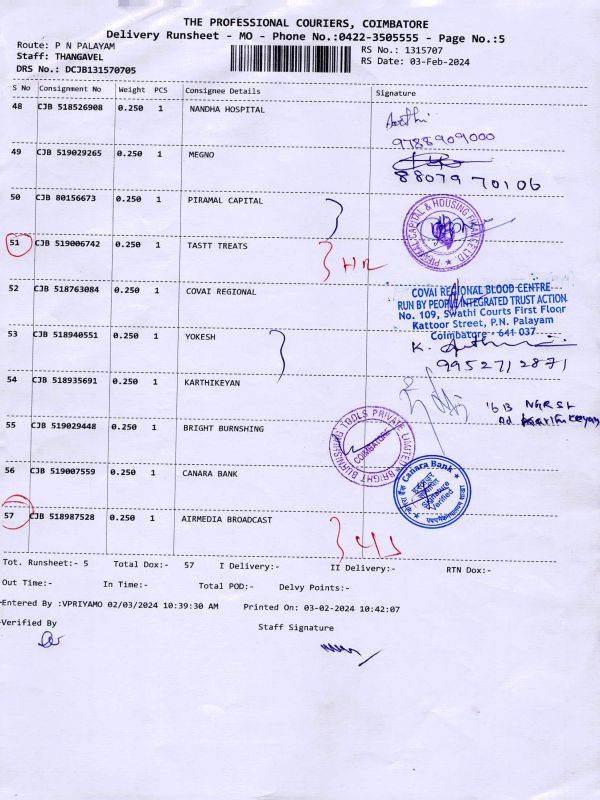 THE PROFESSIONAL COURIERS, COIMBATORE
Delivery Runsheet - MO - Phone No.:0422-3505555 - Page No.:5
Route: P N PALAYAM RS No.: 1315707
Staff: THANGAVEL RS Date: 03-Feb-2024
DRS No.: DCJB131570705
S No Consignment No Weight PCS Consignee Details Signature
48 CJB 518526908 0.250 1 NANDHA HOSPITAL
9788909000
49 CJB 519029265 0.250 1 MEGNO
88079 70106
50 CJB 80156673 0.250 1 PIRAMAL CAPITAL
PIRAMAL CAPITAL & HOUSING FINANCE LTD.
51 CJB 519006742 0.250 1 TASTT TREATS
52 CJB 518763084 0.250 1 COVAI REGIONAL
COVAI REGIONAL BLOOD CENTRE
RUN BY PEOPLE INTEGRATED TRUST ACTION.
No. 109, Swathi Courts First Floor
Kattoor Street, P.N. Palayam
Coimbatore - 641 037
53 CJB 518940551 0.250 1 YOKESH
9952712871
54 CJB 518935691 0.250 1 KARTHIKEYAN
55 CJB 519029448 0.250 1 BRIGHT BURNSHING
BRIGHT BURNISHING TOOLS PRIVATE LIMITED
COIMBATORE
56 CJB 519007559 0.250 1 CANARA BANK
Canara Bank
Signature
Verified
57 CJB 518987528 0.250 1 AIRMEDIA BROADCAST
Tot. Runsheet:- 5 Total Dox:- 57 I Delivery:- II Delivery:- RTN Dox:-
Out Time:- In Time:- Total POD:- Delvy Points:-
Entered By :VPRIYAMO 02/03/2024 10:39:30 AM Printed On: 03-02-2024 10:42:07
Verified By Staff Signature